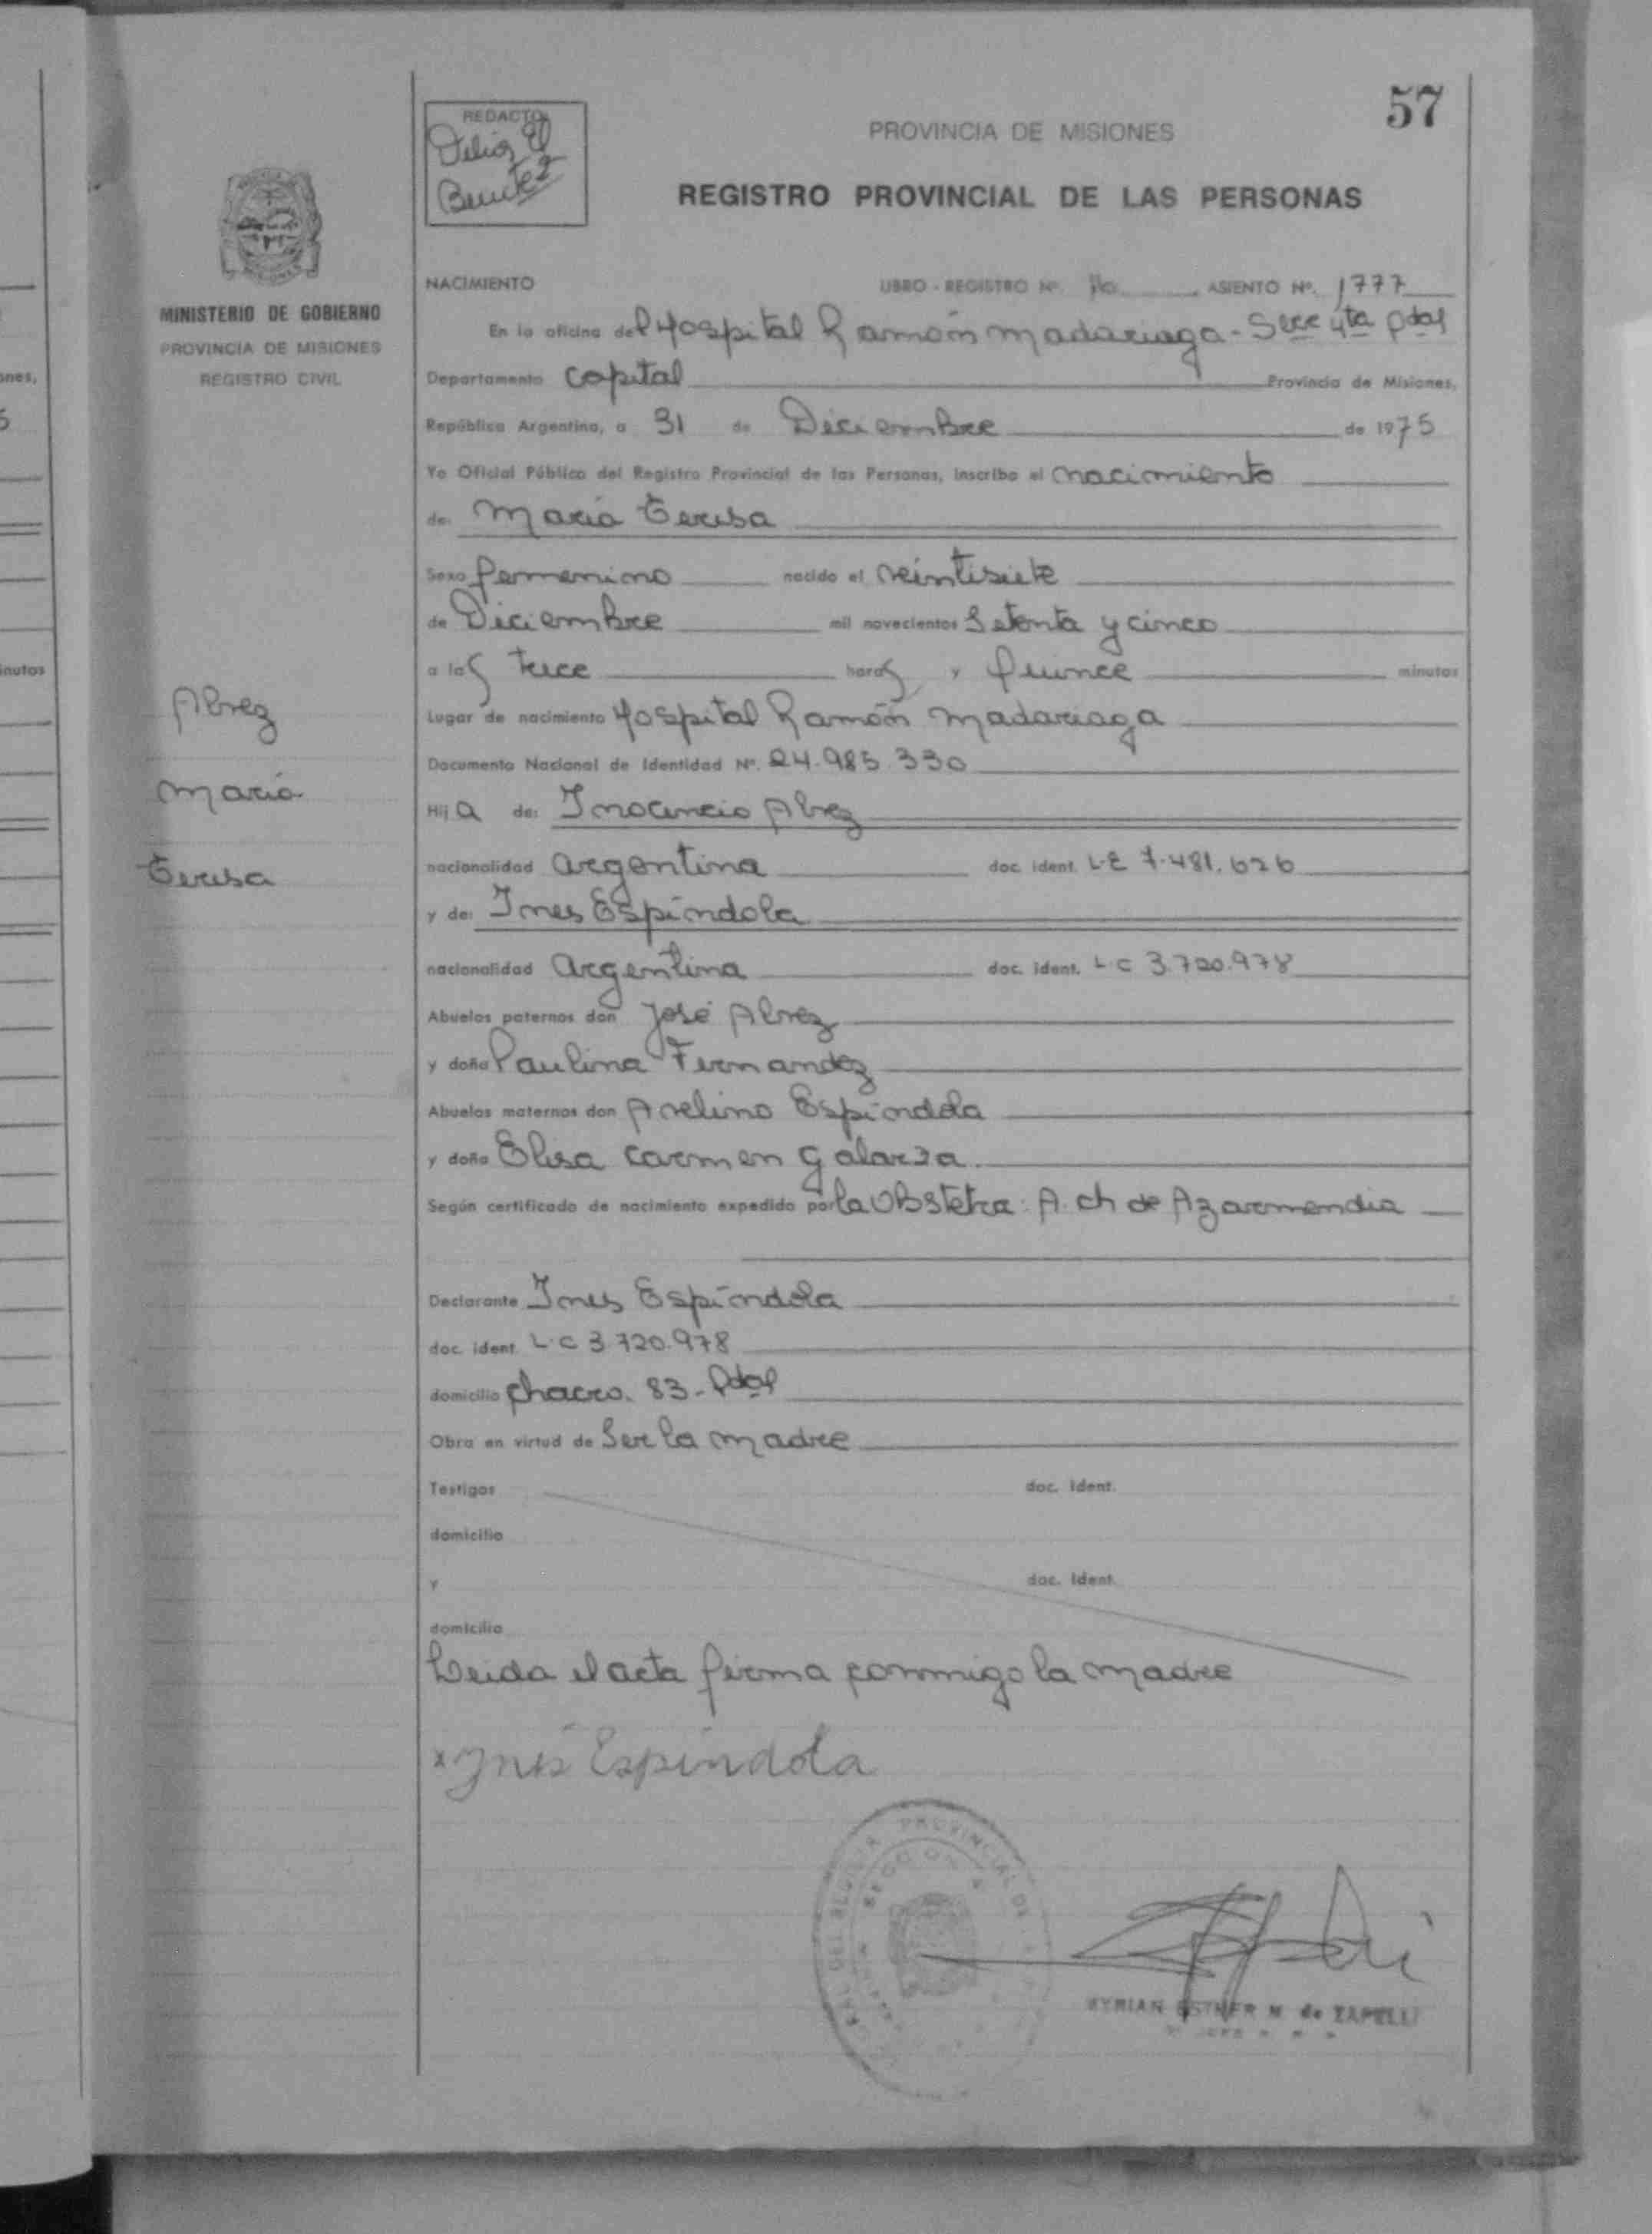 57
REDACTO
Benitez
PROVINCIA DE MISIONES
REGISTRO PROVINCIAL DE LAS PERSONAS
MINISTERIO DE GOBIERNO
PROVINCIA DE MISIONES
REGISTRO CIVIL
NACIMIENTO LIBRO - REGISTRO Nº. ASIENTO Nº. 1777
En la oficina del Hospital Ramón Madariaga - Secc 4ta Pdas
Departamento Capital Provincia de Misiones,
República Argentina, a 31 de Diciembre de 1975
Yo Oficial Público del Registro Provincial de las Personas, inscribo el nacimiento
de: María Teresa
Sexo femenino nacido el veintisiete
de Diciembre mil novecientos Setenta y cinco
a las trece horas y quince minutos
Lugar de nacimiento Hospital Ramón Madariaga
Documento Nacional de Identidad Nº. 24.985.330
Hija de: Inocencio Alvez
nacionalidad argentina doc. ident. L-E 7.481.626
y de: Ines Espíndola
nacionalidad Argentina doc. ident. L-C 3.720.978
Abuelos paternos don José Alvez
y doña Paulina Fernandez
Abuelos maternos don Avelino Espíndola
y doña Elisa Carmen Galarza
Según certificado de nacimiento expedido por la Obstetra: A. ch de Azarmendia
Declarante Ines Espíndola
doc. ident. L-C 3.720.978
domicilio chacra. 83 - Pdas
Obra en virtud de Ser la madre
Testigos doc. Ident.
domicilio
y doc. Ident.
domicilio
Leida el acta firma conmigo la madre
x Inés Espíndola
MYRIAN ESTHER M. de ZAPELLI
Alvez
María
Teresa
ones,
5
inutos